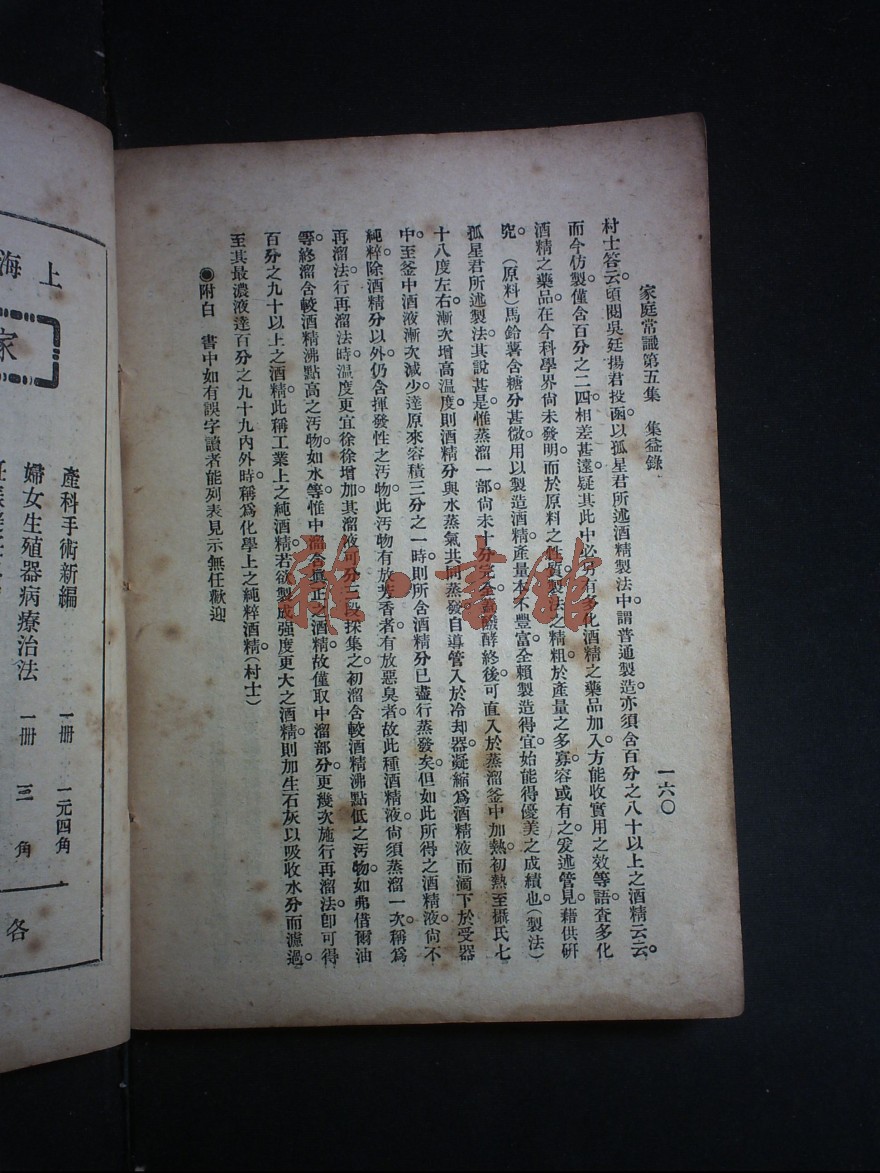 家庭常識第五集 集益錄 一六〇
村士答云。頃閱吳廷揚君投函。以孤星君所述酒精製法中。謂普通製造。亦須含百分之八十以上之酒精云云。
而今仿製僅含百分之二四。相差甚遠。疑其此中必另有多化酒精之藥品加入。方能收實用之效等語。查多化
酒精之藥品。在今科學界尙未發明。而於原料之性質。製法之精粗。於產量之多寡。容或有之。爰述管見。藉供研
究。(原料)馬鈴薯含糖分甚微。用以製造酒精。產量本不豐富。全賴製造得宜。始能得優美之成績也。(製法)
孤星君所述製法。其說甚是。惟蒸溜一部。尙未十分完全。醱酵終後。可直入於蒸溜釜中加熱。初熱至攝氏七
十八度左右。漸次增高温度。則酒精分與水蒸氣共同蒸發。自導管入於冷却器。凝縮爲酒精液而滴下於受器
中。至釜中酒液漸次減少。達原來容積三分之一時。則所含酒精分已盡行蒸發矣。但如此所得之酒精液。尙不
純粹。除酒精分以外。仍含揮發性之汚物。此汚物有放芳香者。有放惡臭者。故此種酒精液。尙須蒸溜一次。稱爲
再溜法。行再溜法時。温度更宜徐徐增加。其溜液可分三段採集之。初溜含較酒精沸點低之汚物。如弗借爾油
等。終溜含較酒精沸點高之汚物。如水等。惟中溜含眞正之酒精。故僅取中溜部分。更幾次施行再溜法。卽可得
百分之九十以上之酒精。此稱工業上之純酒精。若欲製成强度更大之酒精。則加生石灰以吸收水分而濾過。
至其最濃液達百分之九十九內外時。稱爲化學上之純粹酒精。(村士)
◉附白 書中如有誤字讀者能列表見示無任歡迎
上海
家
產科手術新編 一册 一元四角
婦女生殖器病療治法 一册 三角
各
雜·書館